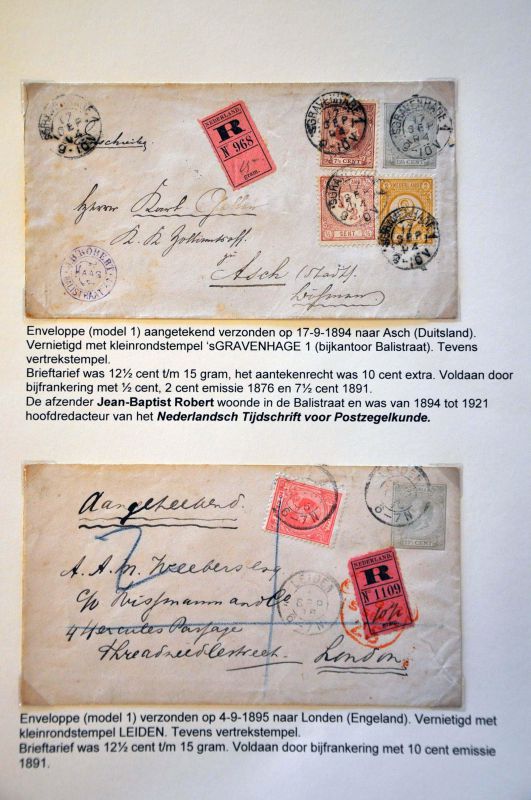 'sGRAVENHAGE 1
17 SEP 94
NEDERLAND
R
Nº 968
Herrn Karl
K. K.
Asch (Stadt)
Böhmen
½ CENT.
NEDERLAND
12½ CENT
Enveloppe (model 1) aangetekend verzonden op 17-9-1894 naar Asch (Duitsland).
Vernietigd met kleinrondstempel 'sGRAVENHAGE 1 (bijkantoor Balistraat). Tevens
vertrekstempel.
Brieftarief was 12½ cent t/m 15 gram, het aantekenrecht was 10 cent extra. Voldaan door
bijfrankering met ½ cent, 2 cent emissie 1876 en 7½ cent 1891.
De afzender Jean-Baptist Robert woonde in de Balistraat en was van 1894 tot 1921
hoofdredacteur van het Nederlandsch Tijdschrift voor Postzegelkunde.
Aangeteekend.
A. A. M. Weebers esq
c/o Wissmann and Co
4 Hercules Passage
Threadneedlestreet. London.
LEIDEN
6-7N
NEDERLAND
R
Nº 1109
12½ CENT
Enveloppe (model 1) verzonden op 4-9-1895 naar Londen (Engeland). Vernietigd met
kleinrondstempel LEIDEN. Tevens vertrekstempel.
Brieftarief was 12½ cent t/m 15 gram. Voldaan door bijfrankering met 10 cent emissie
1891.